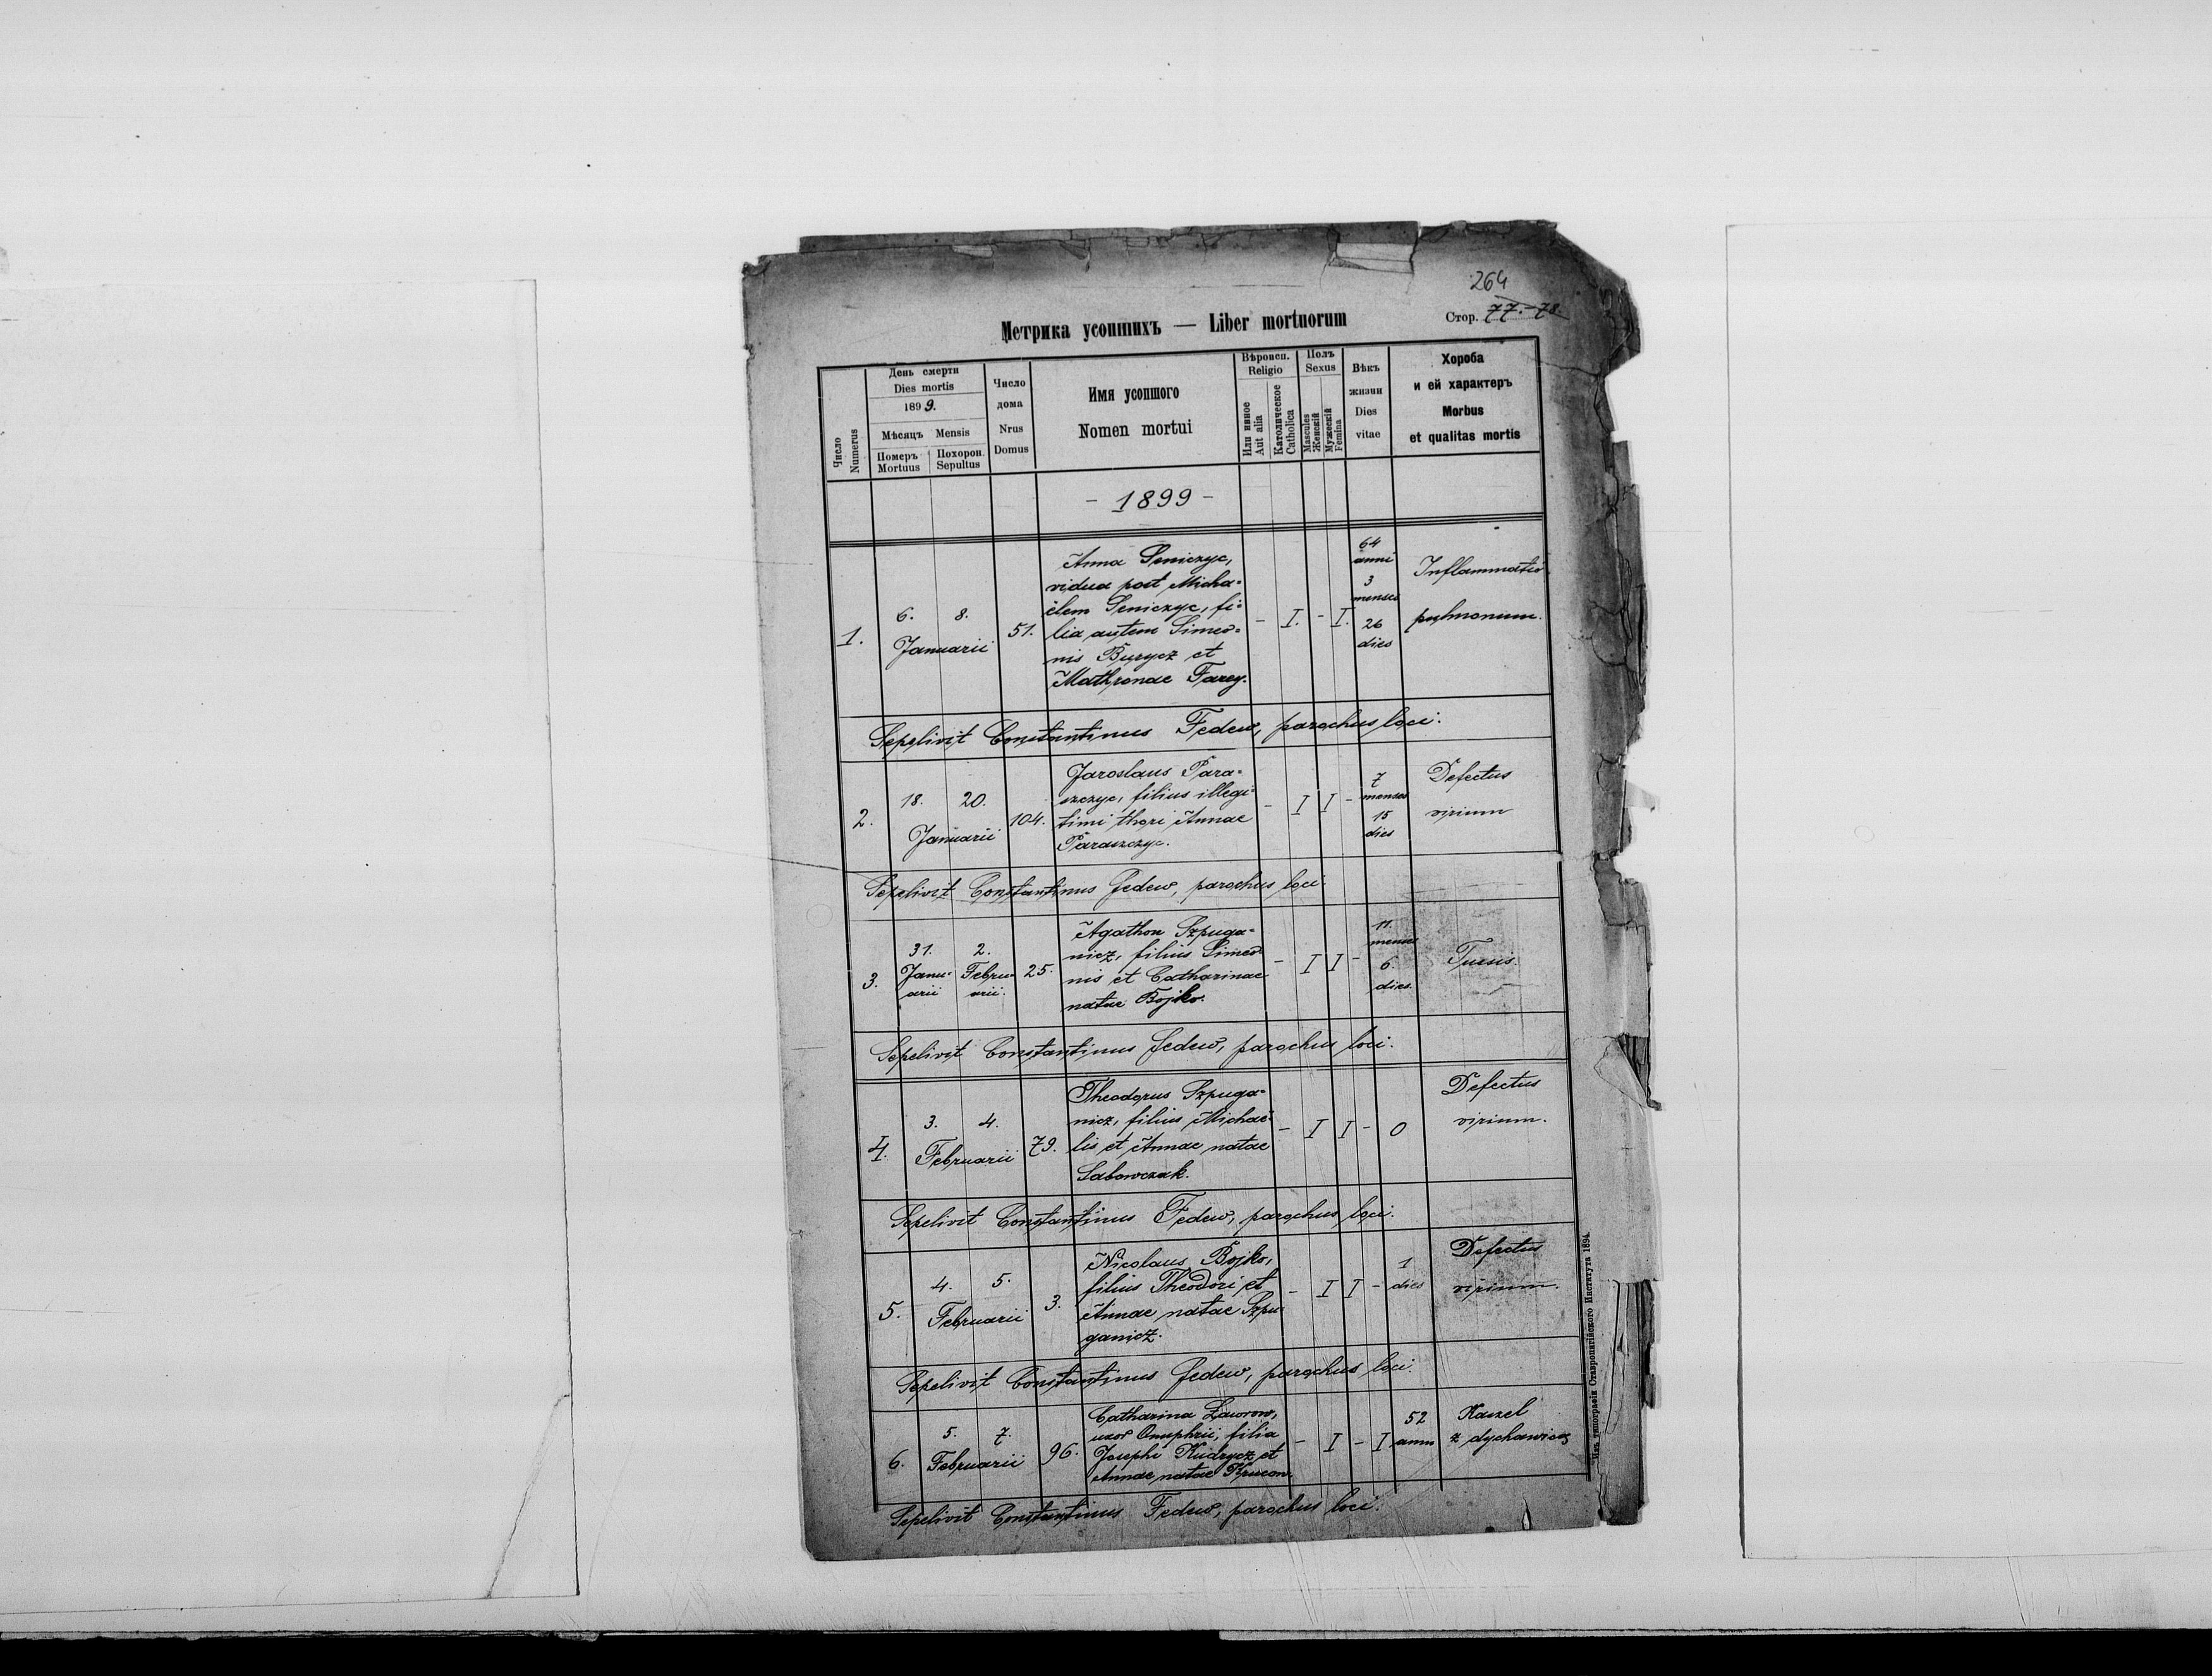 264
Стор. 77.-78.
Метрика усопшихъ — Liber mortuorum
Число
Numerus
День смерти
Dies mortis
1899.
Мѣсяцъ Mensis
Померъ
Mortuus
Похорон.
Sepultus
Число
дома
Nrus
Domus
Имя усопшого
Nomen mortui
Вѣроисп.
Religio
Или инное
Aut alia
Католическое
Catholica
Полъ
Sexus
Mascules
Женскій
Мужескій
Femina
Вѣкъ
жизни
Dies
vitae
Хороба
и ей характеръ
Morbus
et qualitas mortis
- 1899 -
1.
6. 8.
Januarii
51.
Anna Seniczyc,
vidua post Micha=
ëlem Seniczyc, fi=
lia autem Simeo=
nis Burycz et
Mathronae Farey.
- I. - I.
64
anni
3
menses
26
dies
Inflammatio
pulmonum.
Sepelivit Constantinus Fedew, parochus loci.
2.
18. 20.
Januarii
104.
Jaroslaus Para=
szczyc, filius illegi=
timi thori Annae
Paraszczyc.
- I I -
7
menses
15
dies
Defectus
virium
Sepelivit Constantinus Fedew, parochus loci.
3.
31. 2.
Janu= Febru=
arii arii.
25.
Agathon Szpuga=
nicz, filius Simeo
nis et Catharinae
natae Bojko.
- I I -
11.
menses
6.
dies.
Tussis.
Sepelivit Constantinus Fedew, parochus loci.
4.
3. 4.
Februarii
79.
Theodorus Szpuga=
nicz, filius Michaë=
lis et Annae natae
Sabowczak.
- I I -
0
Defectus
virium.
Sepelivit Constantinus Fedew, parochus loci.
5.
4. 5.
Februarii
3.
Nicolaus Bojko,
filius Theodori et
Annae natae Szpu
ganicz.
- I I -
1
dies
Defectus
virium.
Sepelivit Constantinus Fedew, parochus loci.
6.
5. 7.
Februarii
96.
Catharina Laurow,
uxor Onuphrii, filia
Josephi Kudrycz et
Annae natae
- I - I
52
anni
Kaszel
z dychawicy
Sepelivit Constantinus Fedew, parochus loci.
Изъ типографіи Ставропигійского Института 1894.